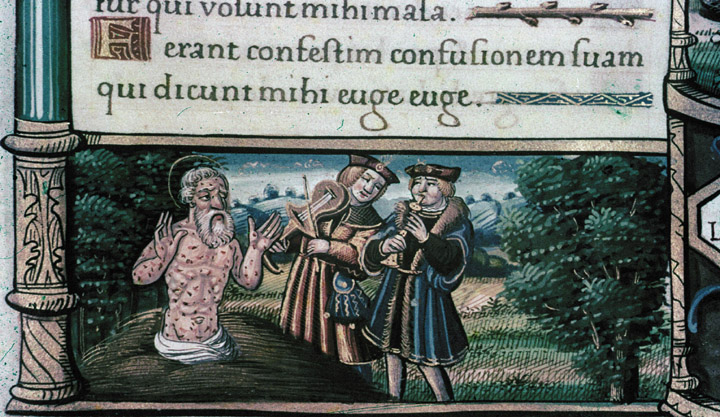 tur qui volunt mihi mala.
Ferant confestim confusionem suam
qui dicunt mihi euge euge.
L